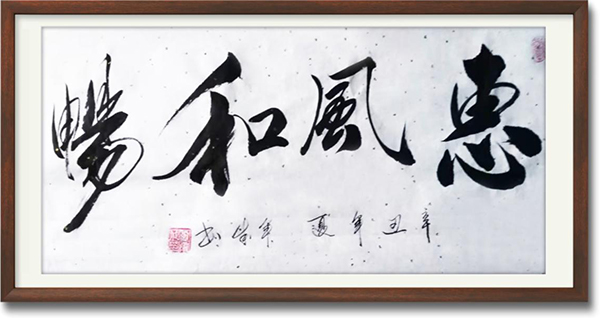 惠風和暢
辛丑年夏